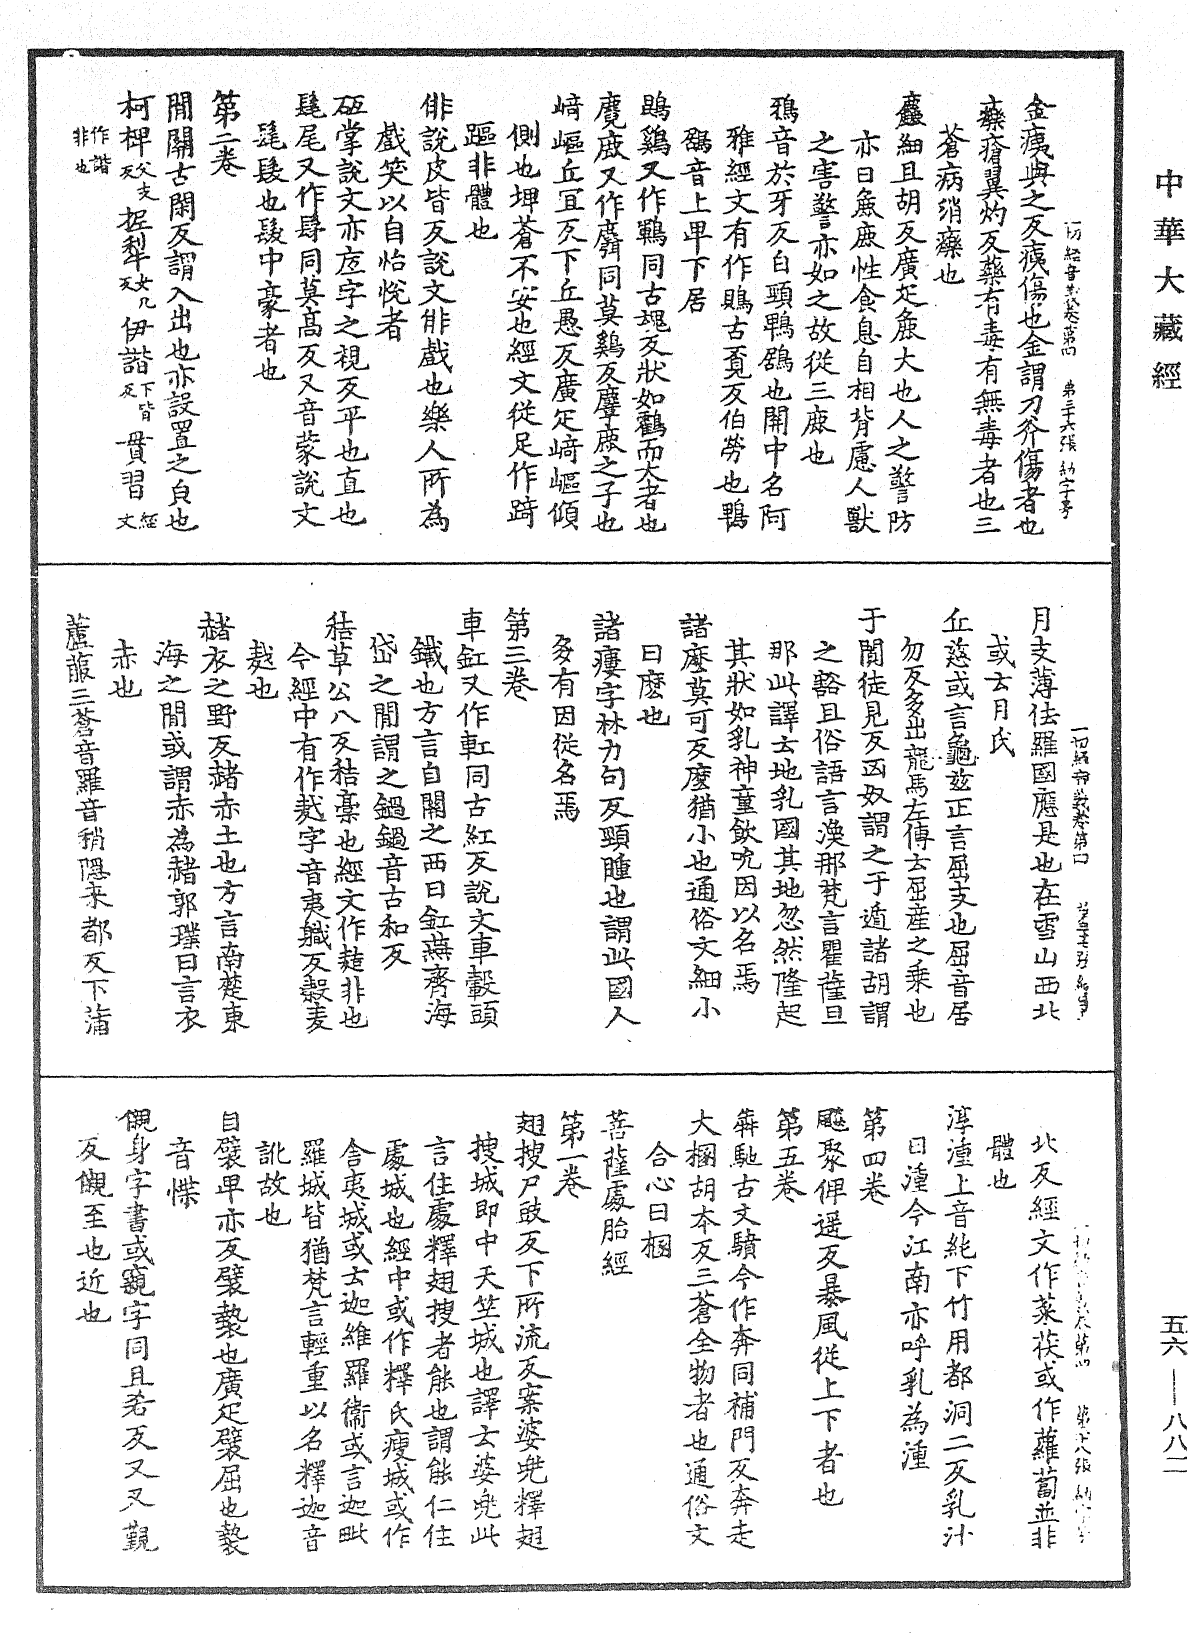 中華大藏經
五六——八八二
一切經音義卷第四 第三十六張 納字号
金痍與之反痍傷也金謂刀斧傷者也
藥瘡翼灼反藥有毒有無毒者也三
蒼病消藥也
麤細且胡反廣疋麁大也人之警防
亦曰麁鹿性食息自相背慮人獸
之害警亦如之故從三鹿也
鵶音於牙反白頸鴨鵅也關中名阿
雅經文有作鵙古覓反伯勞也鴨
鵅音上甲下居
鵾鷄又作鶤同古魂反狀如鸛而大者也
麑鹿又作麛同莫鷄反麞鹿之子也
﨑嶇丘冝反下丘愚反廣疋﨑嶇傾
側也埤蒼不安也經文從足作踦
䠓非體也
俳說皮皆反說文俳戲也樂人所為
戲笑以自怡悅者
砥掌說文亦庢字之視反平也直也
髦尾又作髳同莫高反又音蒙說文
髦髮也髮中豪者也
第二卷
閞闢古閑反謂入出也亦設置之皃也
柯椑父支反 抳犁女几反 伊諧下皆反 貫習經文
作諧非也
一切經音義卷第四
月支薄佉羅國應是也在雪山西北
或云月氏
丘慈或言龜兹正言屈支也屈音居
勿反多出龍馬左傳云屈産之乗也
于闐徒見反匈奴謂之于遁諸胡謂
之豁且俗語言渙那梵言瞿薩旦
那此譯云地乳國其地忽然隆起
其狀如乳神童飲吮因以名焉
諸麼莫可反麼猶小也通俗文細小
曰麽也
諸瘻字林力句反頸腫也謂此國人
多有因從名焉
第三卷
車釭又作軠同古紅反說文車轂頭
鐵也方言自關之西曰釭燕齊海
岱之閒謂之鍋鍋音古和反
秸草公八反秸稾也經文作䕸非也
今經中有作麧字音夷職反䅽麦
麧也
赭衣之野反赭赤土也方言南楚東
海之閒或謂赤為赭郭璞曰言衣
赤也
蘆菔三蒼音羅音稍隱来都反下蒲
北反經文作萊茯或作蘿蔔並非
體也
淳湩上音純下竹用都洞二反乳汁
曰湩今江南亦呼乳為湩
第四卷
飈聚俾遥反暴風從上下者也
第五卷
犇馳古文驞今作奔同補門反奔走
大棞胡夲反三蒼全物者也通俗文
合心曰棞
菩薩處胎經
第一卷
翅搜尸豉反下所流反案婆兜釋翅
搜城即中天竺城也譯云婆兜此
言住處釋翅搜者能也謂能仁住
處城也經中或作釋氏瘦城或作
舍夷城或云迦維羅衞或言迦毗
羅城皆猶梵言輕重以名釋迦音
訛故也
自襞甲亦反襞褺也廣疋襞屈也褺
音牒
儭身字書或竀字同且吝反又叉覲
反儭至也近也